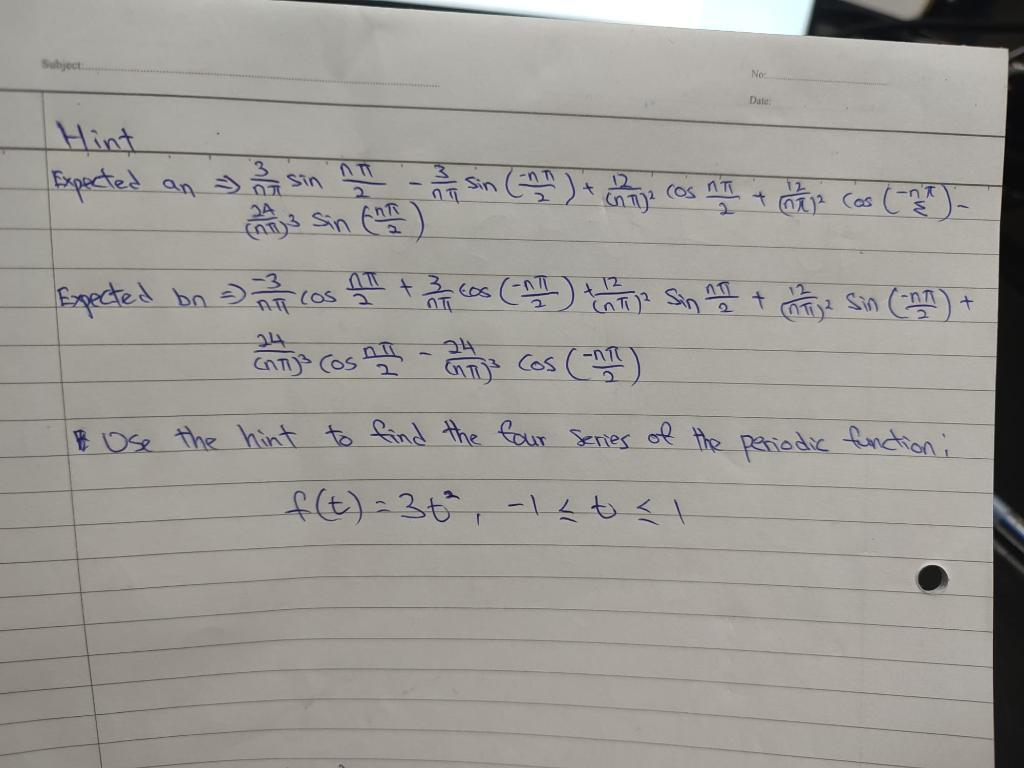 Subject:
No:
Date:
Hint
Expected an ⇒ 3/nπ sin nπ/2 - 3/nπ sin (-nπ/2) + 12/(nπ)² cos nπ/2 + 12/(nπ)² cos (-nπ/2) -
24/(nπ)³ sin (nπ/2)
Expected bn ⇒ -3/nπ cos nπ/2 + 3/nπ cos (-nπ/2) + 12/(nπ)² sin nπ/2 + 12/(nπ)² sin (-nπ/2) +
24/(nπ)³ cos nπ/2 - 24/(nπ)³ cos (-nπ/2)
Use the hint to find the four series of the periodic function;
f(t) = 3t², -1 ≤ t ≤ 1